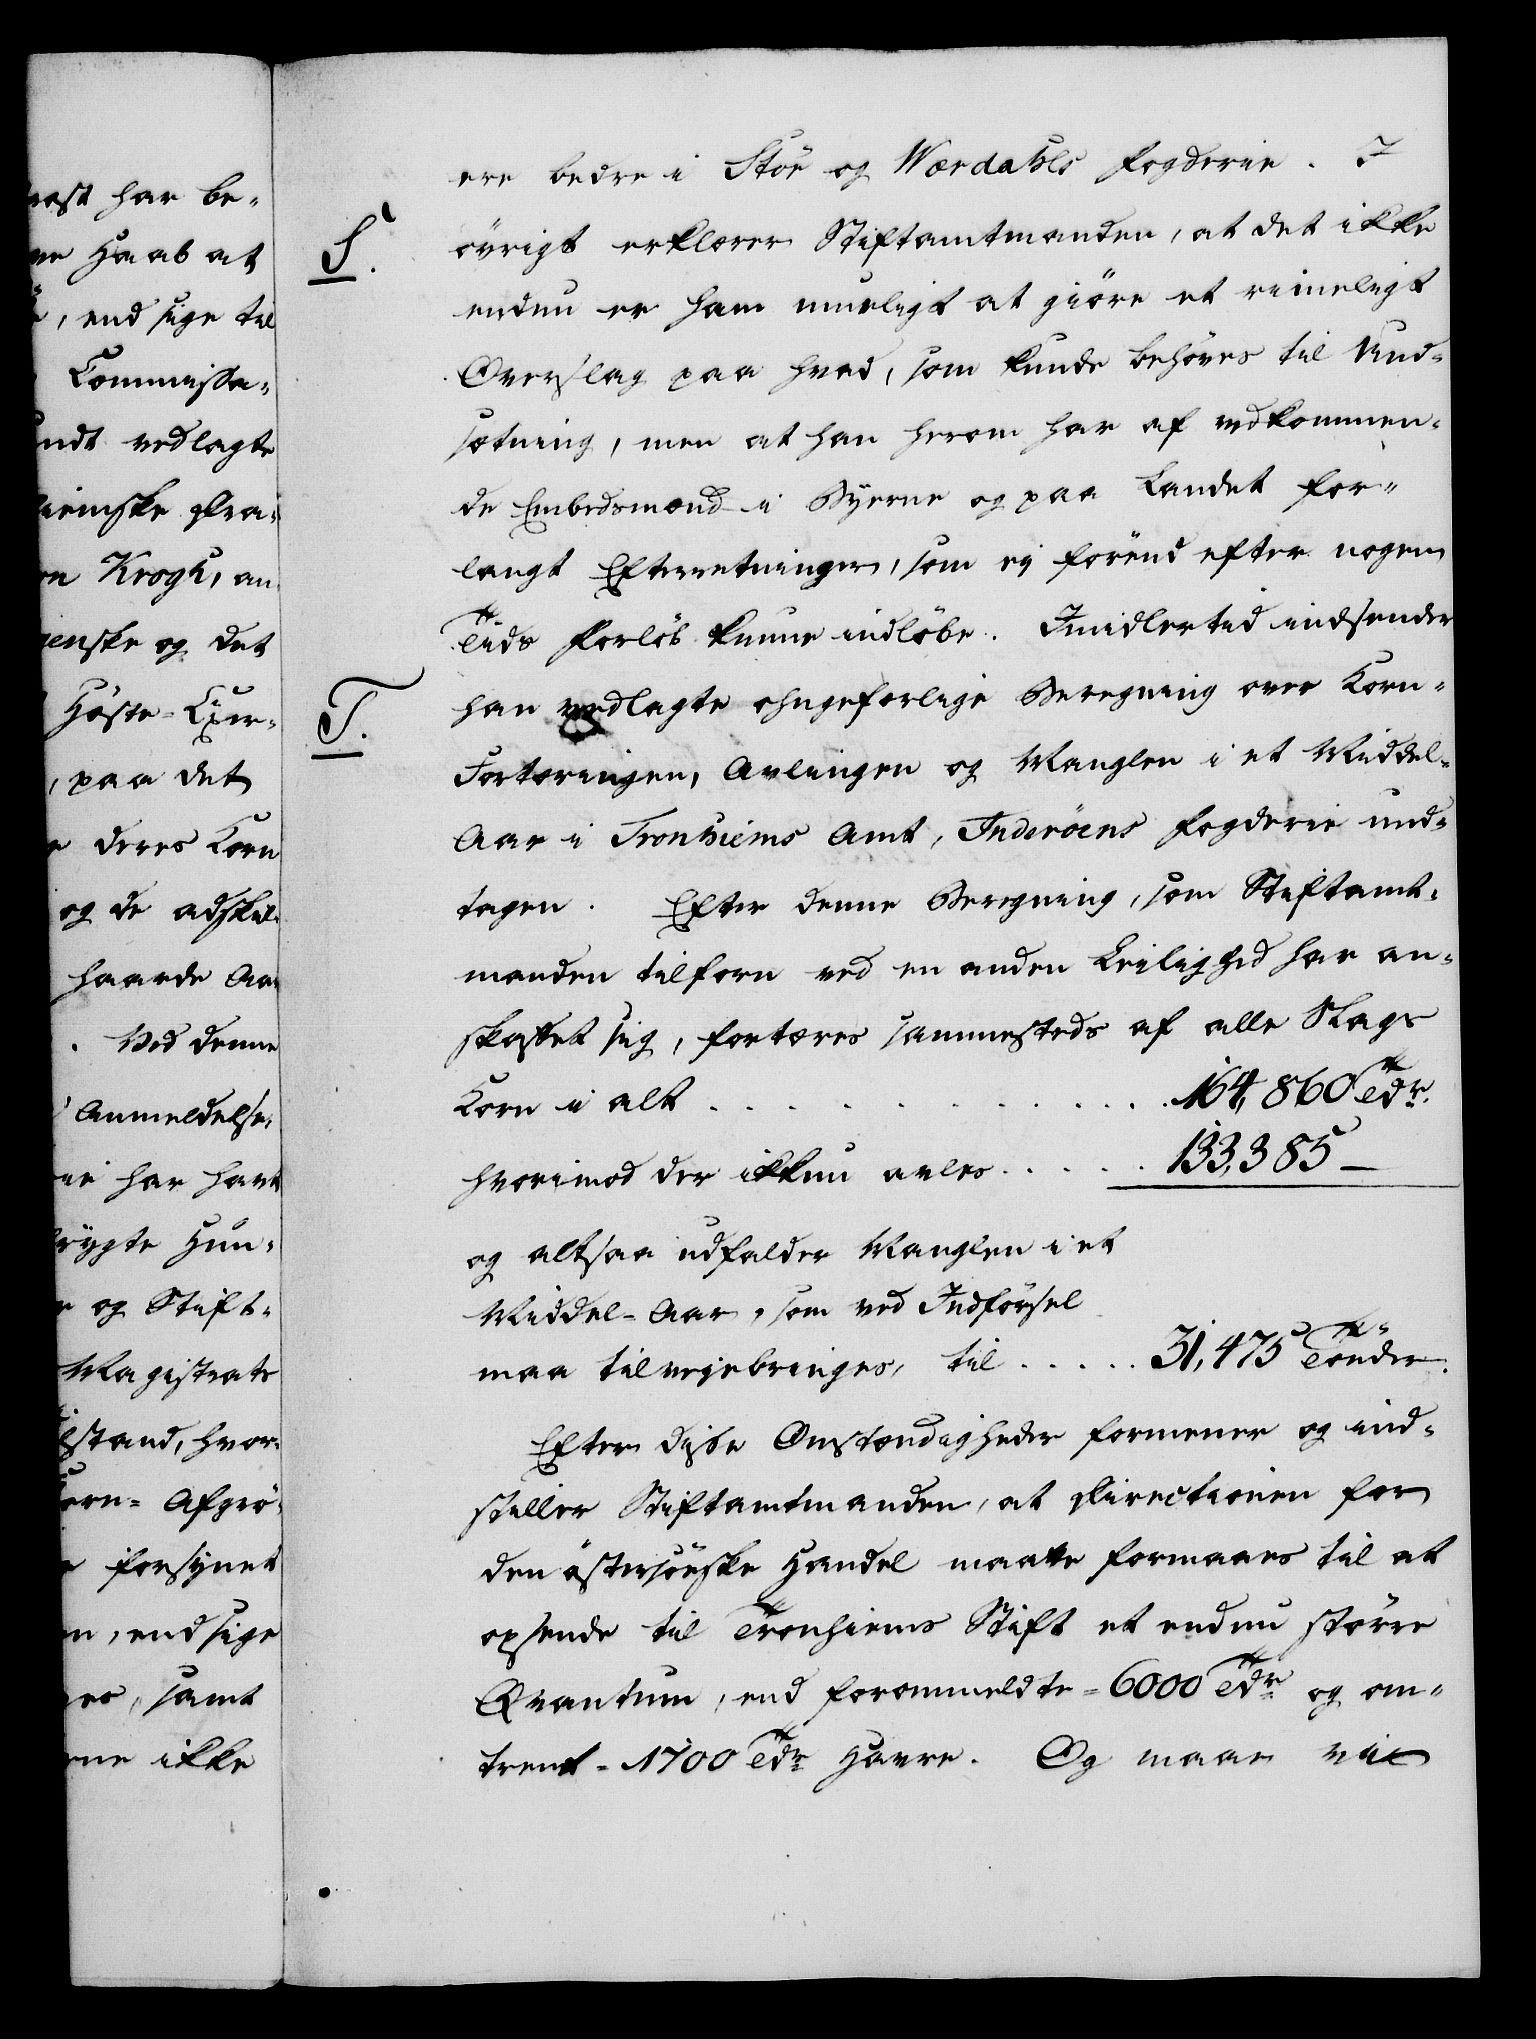 rost har be-
ve Haab at
, end sige til
Commissa-
undt vedlagte
hiemske Pra-
on Krogh, an-
ienske og det
Höste-Exer-
, paa det
e deres Korn
og de adskil-
haarde Aa
. Ved denne
Anmeldelse,
ie har havt
brygte Hun-
e og Stift-
Magistrats
lstand, hvor-
orn-Afgrö-
e forsynet
n, end sige
es, samt
rne ikke
ere bedre i Stör og Værdahls Fogderie. I
S.
övrigt erklærer Stiftamtmanden, at det ikke
endnu er ham mueligt at giöre et rimeligt
Overslag paa hvad, som kunde behöves til Und-
sætning, men at han herom har af vedkommen-
de Embedsmænd i Byerne og paa Landet for-
langt Efterretninger, som ej förend efter nogen
Tids Forlöb kunne indlöbe. Imidlertid indsender
T.
han vedlagte ohngeforlige Beregning over Korn-
Fortæringen, Avlingen og Manglen i et Middel-
Aar i Tronhiems Amt, Inderöens Fogderie und-
tagen. Efter denne Beregning, som Stiftamt-
manden tilforn ved en anden Leilighed har an-
skaffet sig, fortæres sammesteds af alle Slags
Korn i alt . . . . . . . . . . . 164,860 Tdr.
hvorimod der ikkun avles . . . . . 133,385 —
og altsaa udfalder Manglen i et
Middel-Aar, som ved Indförsel
maa tilvejebringes, til . . . . . 31,475 Tönder.
Efter disse Omstændigheder formener og ind-
stiller Stiftamtmanden, at Directionen for
den östersöiske Handel maatte formaaes til at
opsende til Tronhiems Stift et endnu större
Qvantum, end forommeldte = 6000 Tdr og om-
trent = 1700 Tdr Havre. Og maae vi